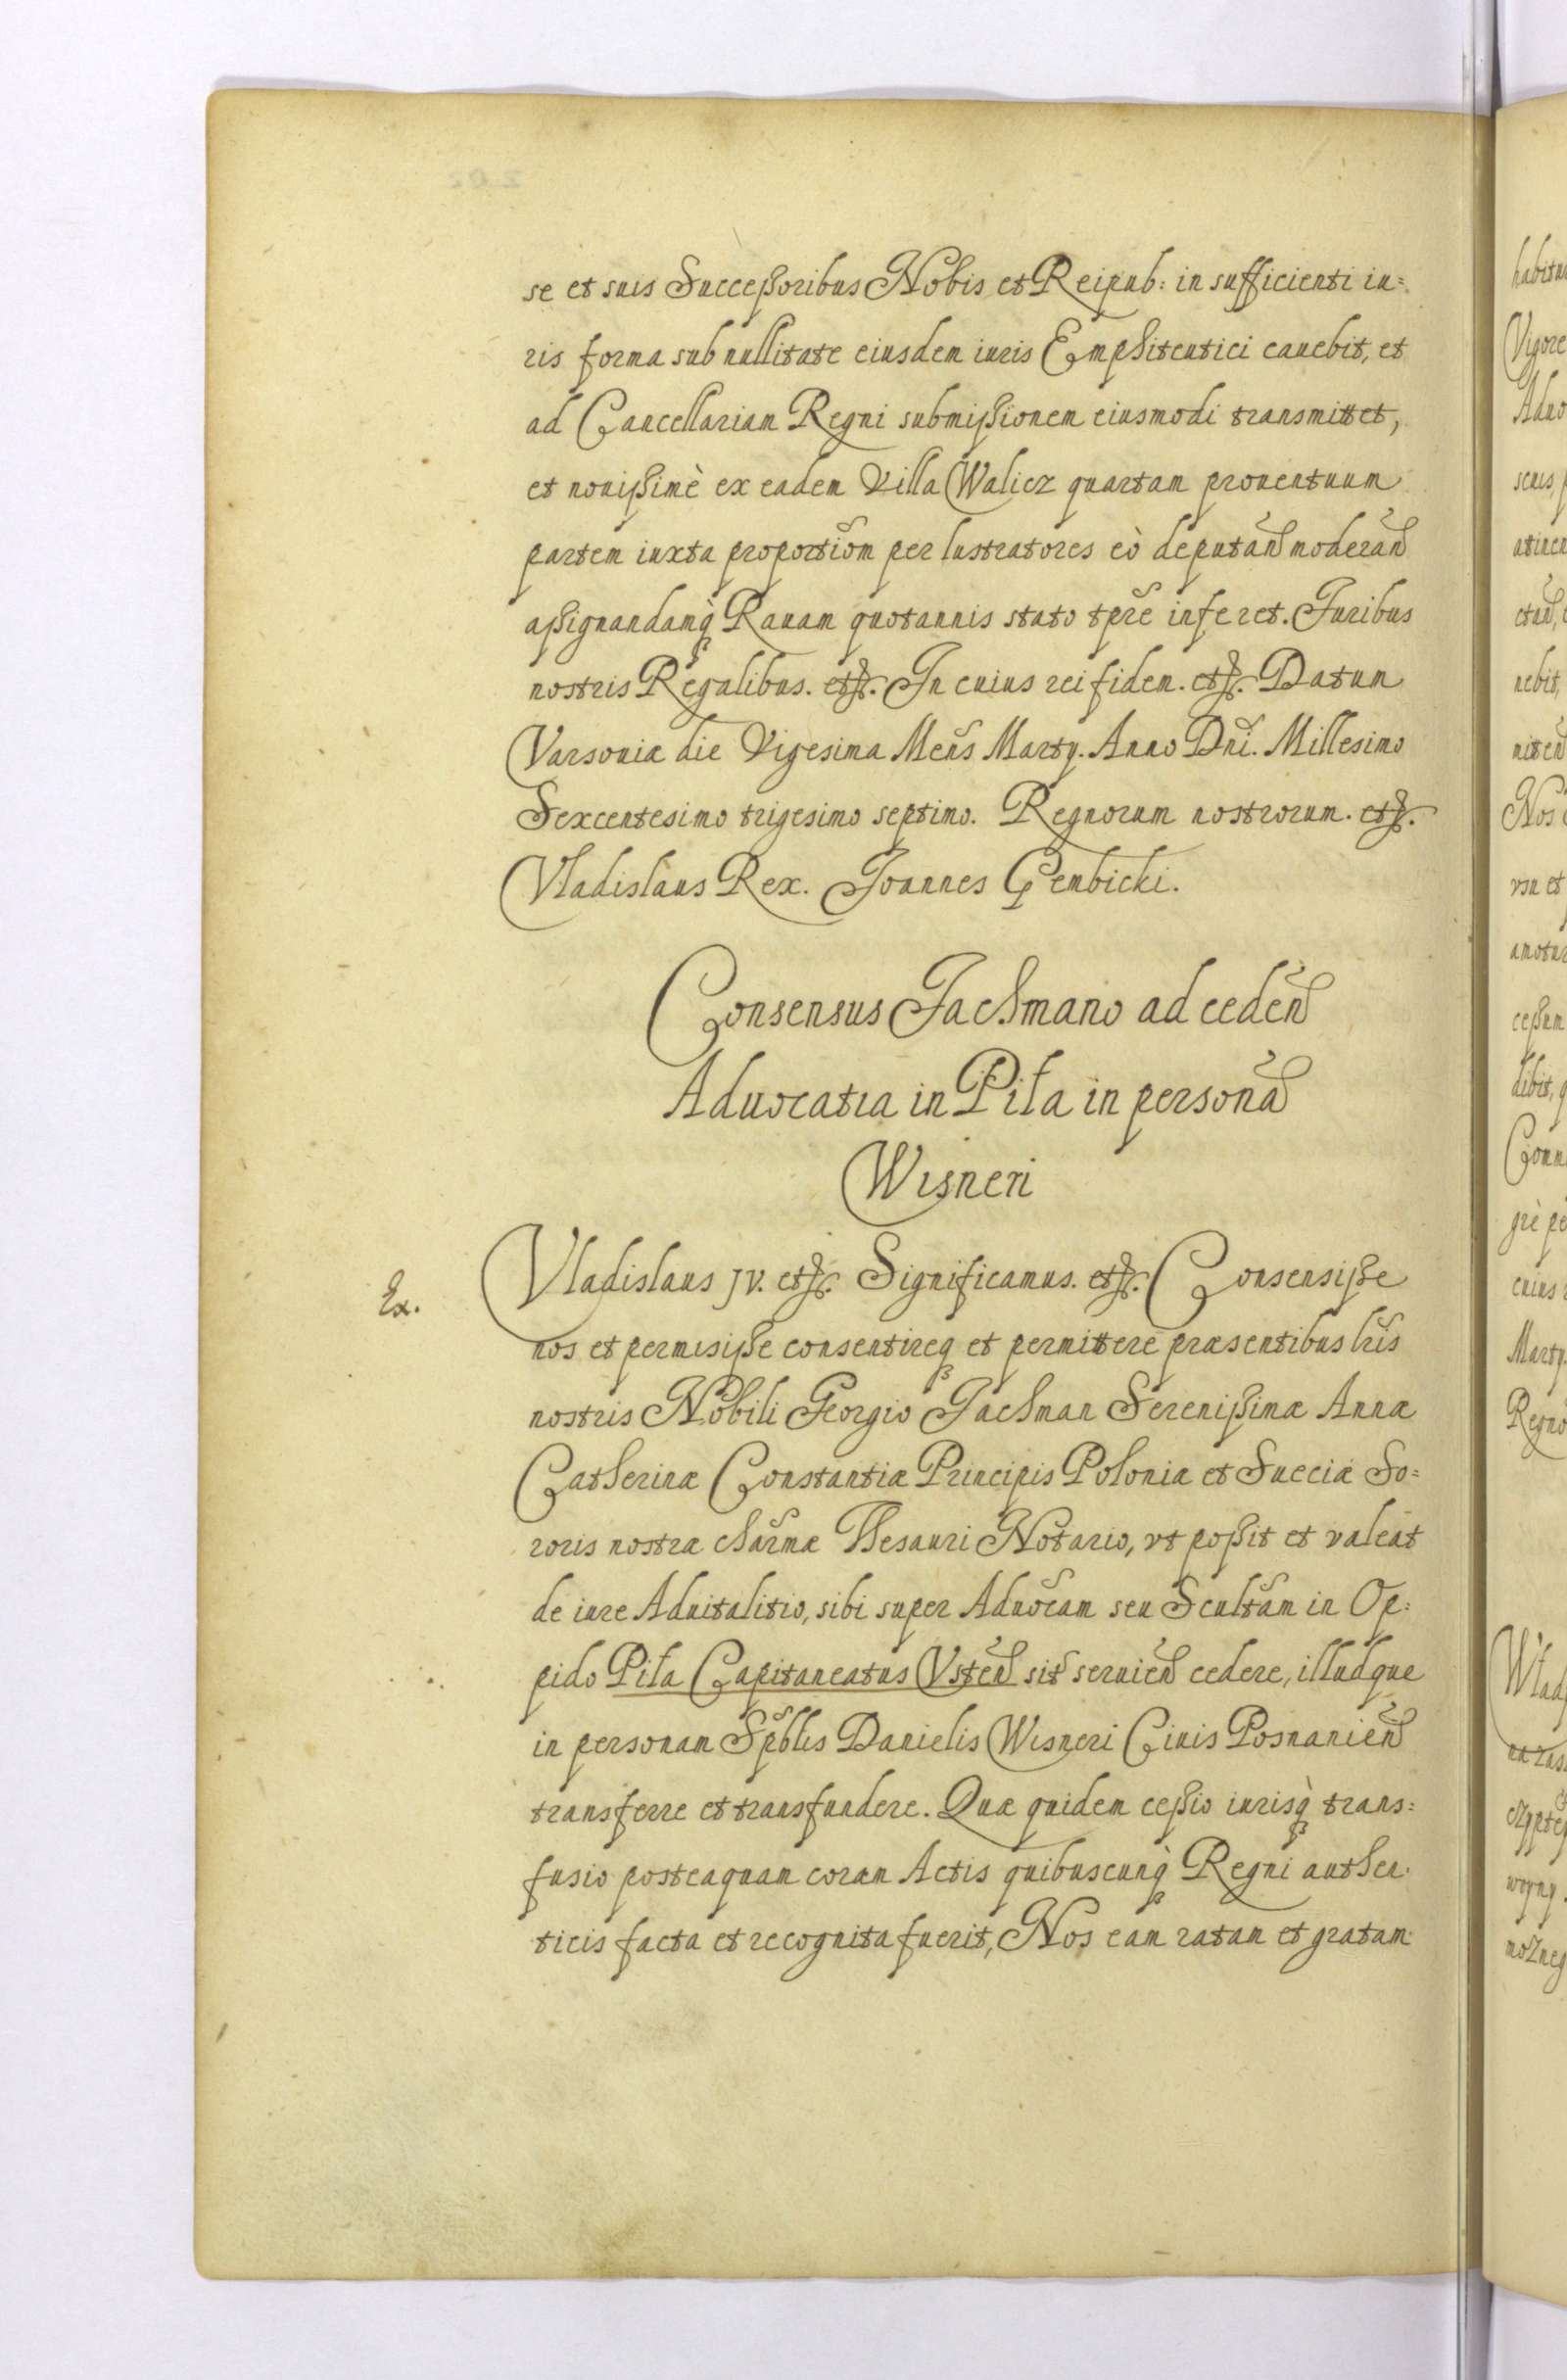 se et suis Successoribus Nobis et Reipub: in sufficienti iu=
ris forma sub nullitate eiusdem iuris Emphiteutici cauebit, et
ad Cancellariam Regni submissionem eiusmodi transmittet,
et nouissimè ex eadem Villa Walicz quartam prouentuum
partem iuxta proportiõm per lustratores eò deputañd moderañd
assignandamq̀ Rauam quotannis stato tp̃re inferet. Juribus
nostris Regalibus. etc. In cuius rei fidem. etc. Datum
Varsouiæ die Vigesima Meñs Marty. Anno Dñi. Millesimo
Sexcentesimo trigesimo septimo. Regnorum nostrorum. etc.
Vladislaus Rex. Joannes Gembicki.
Consensus Jachmano ad cedeñd
Aduocatia in Piła in personã
Wisneri
Ex. Vladislaus JV. etc. Significamus. etc. Consensisse
nos et permisisse consentireq et permittere præsentibus lr̃is
nostris Nobili Georgio Jachman Serenissimæ Annæ
Catherinæ Constantiæ Principis Poloniæ et Sueciæ So=
roris nostræ chãrmæ Thesauri Notario, vt possit et valeat
de iure Aduitalitio, sibi super Aduõcam seu Scultãm in Op:
pido Piła Capitaneatus Vsteñ sit̃ seruieñ cedere, illudque
in personam Sp̃blis Danielis Wisneri Ciuis Posnanieñ
transferre et transfundere. Quæ quidem cessio iurisq̀ trans=
fusio posteaquam coram Actis quibuscunq̀ Regni authen
ticis facta et recognita fuerit, Nos eam ratam et gratam